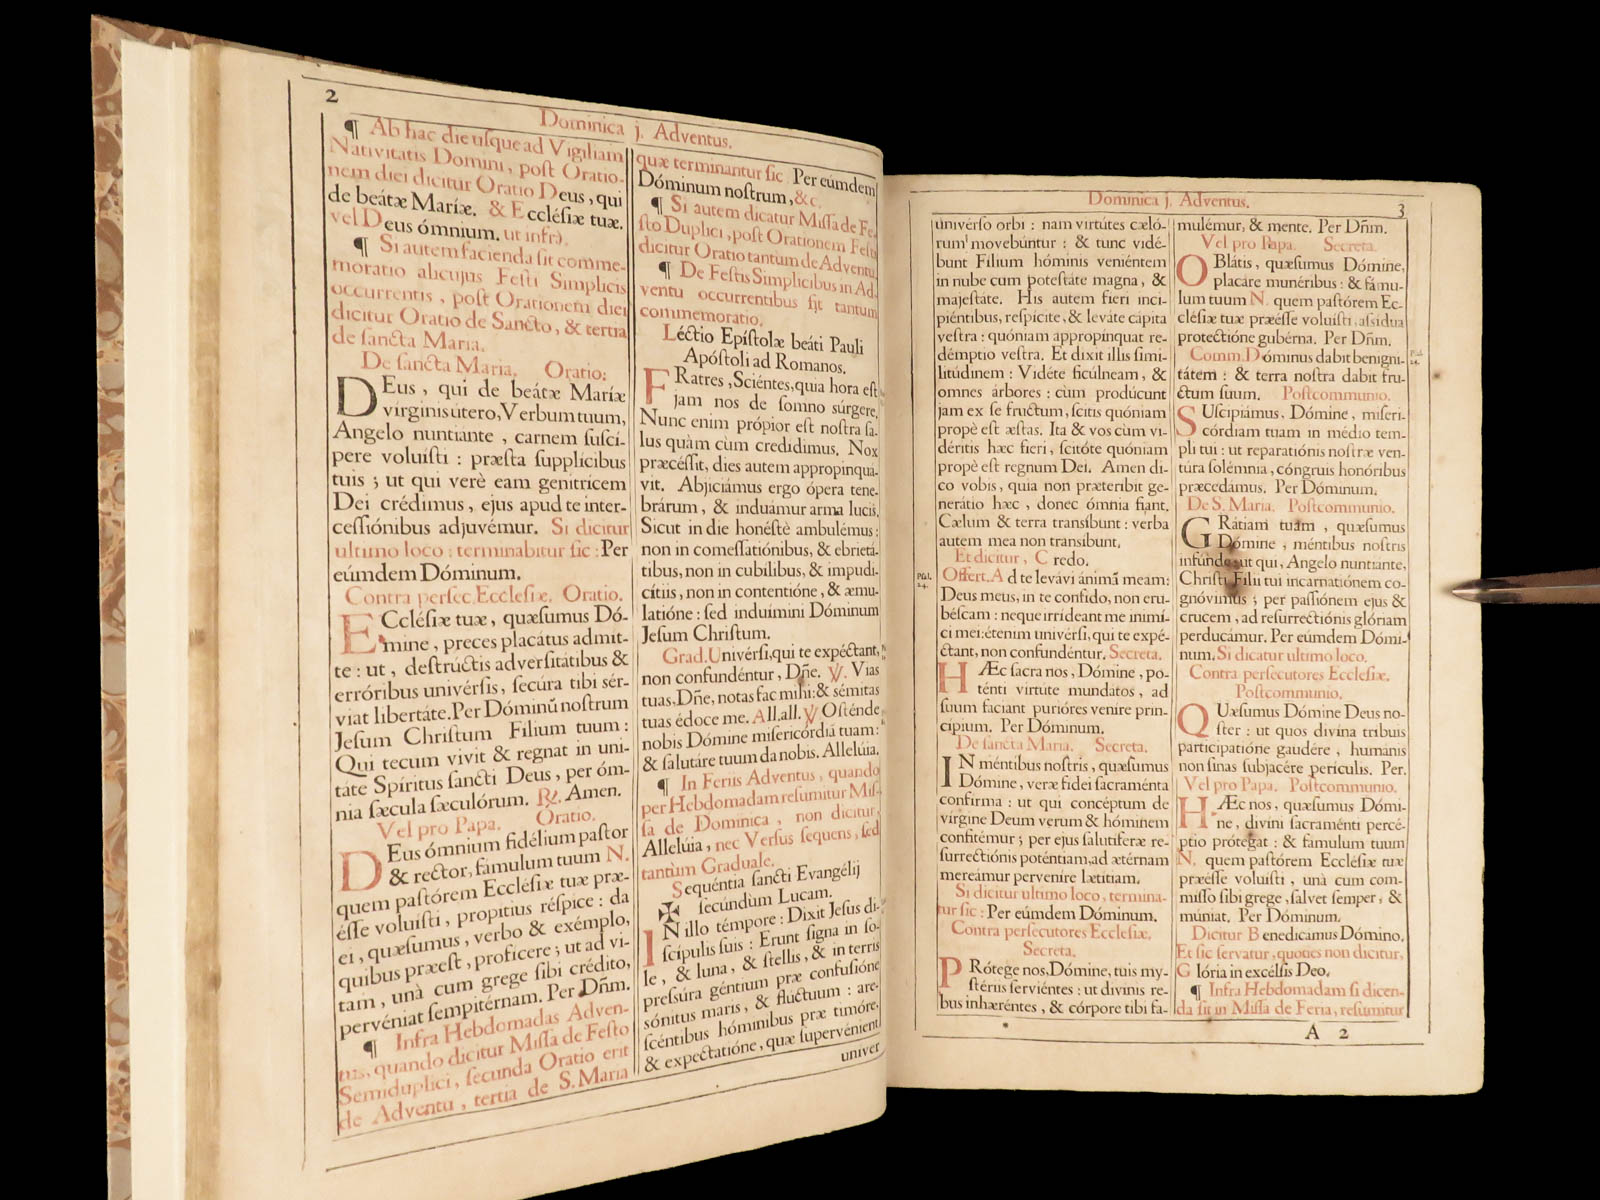 2
Dominica j. Adventus.
¶ Ab hac die uſque ad Vigiliam
Nativitatis Domini, poſt Oratio-
nem diei dicitur Oratio Deus, qui
de beátæ Maríæ. & Eccléſiæ tuæ.
vel Deus ómnium. ut infrà.
¶ Si autem facienda ſit comme-
moratio alicujus Feſti Simplicis
occurrentis, poſt Orationem diei
dicitur Oratio de Sancto, & tertia
de ſancta Maria.
De ſancta Maria. Oratio:
DEus, qui de beátæ Maríæ
vírginis útero, Verbum tuum,
Angelo nuntiánte, carnem ſuſcí-
pere voluíſti: præſta ſupplícibus
tuis; ut qui verè eam genitrícem
Dei crédimus, ejus apud te inter-
ceſſiónibus adjuvémur. Si dicitur
ultimo loco: terminabitur ſic: Per
eúmdem Dóminum.
Contra perſec. Eccleſiæ. Oratio.
ECcléſiæ tuæ, quæſumus Dó-
mine, preces placátus admit-
te: ut, deſtrúctis adverſitátibus &
erróribus univérſis, ſecúra tibi sér-
viat libertáte. Per Dóminū noſtrum
Jeſum Chriſtum Filium tuum:
Qui tecum vivit & regnat in uni-
táte Spíritus ſancti Deus, per óm-
nia ſæcula ſæculórum. ℟. Amen.
Vel pro Papa. Oratio.
DEus ómnium fidélium paſtor
& rector, fámulum tuum N.
quem paſtórem Eccléſiæ tuæ præ-
éſſe voluíſti, propítius réſpice: da
ei, quæſumus, verbo & exémplo,
quibus præeſt, profícere; ut ad vi-
tam, unà cum grege ſibi crédito,
pervéniat ſempitérnam. Per Dñm.
¶ Infra Hebdomadas Adven-
tus, quando dicitur Miſſa de Feſto
Semiduplici, ſecunda Oratio erit
de Adventu, tertia de S. Maria
quæ terminantur ſic Per eúmdem
Dóminum noſtrum, &c.
¶ Si autem dicatur Miſſa de Fe-
ſto Duplici, poſt Orationem Feſti
dicitur Oratio tantum de Adventu.
¶ De Feſtis Simplicibus in Ad-
ventu occurrentibus fit tantum
commemoratio.
Léctio Epíſtolæ beáti Pauli
Apóſtoli ad Romanos.
FRatres, Sciéntes, quia hora eſt
jam nos de ſomno súrgere.
Nunc enim própior eſt noſtra ſa-
lus quàm cùm credídimus. Nox
præcéſſit, dies autem appropinquá-
vit. Abjiciámus ergo ópera tene-
brárum, & induámur arma lucis.
Sicut in die honéſtè ambulémus:
non in comeſſatiónibus, & ebrietá-
tibus, non in cubílibus, & impudi-
cítiis, non in contentióne, & æmu-
latióne: ſed induímini Dóminum
Jeſum Chriſtum.
Grad. Univérſi, qui te expéctant,
non confundéntur, Dñe. ℣. Vias
tuas, Dñe, notas fac mihi: & sémitas
tuas édoce me. All. all. ℣ Oſténde
nobis Dómine miſericórdiā tuam:
& ſalutáre tuum da nobis. Allelúia.
¶ In Feriis Adventus, quando
per Hebdomadam reſumitur Miſ-
ſa de Dominica, non dicitur,
Allelúia, nec Verſus ſequens, ſed
tantùm Graduale.
Sequéntia ſancti Evangélij
✠ ſecúndùm Lucam.
IN illo témpore: Dixit Jeſus di-
ſcípulis ſuis: Erunt ſigna in ſo-
le, & luna, & ſtellis, & in terris
preſsúra géntium præ confuſióne
sónitus maris, & flúctuum: are-
ſcéntibus homínibus præ timóre,
& expectatióne, quæ ſupervénient
univer
Dominica j. Adventus.
3
univérſo orbi: nam virtútes cæló-
rum movebúntur: & tunc vidé-
bunt Filium hóminis veniéntem
in nube cum poteſtáte magna, &
majeſtáte. His autem fíeri inci-
piéntibus, reſpícite, & leváte cápita
veſtra: quóniam appropínquat re-
démptio veſtra. Et dixit illis ſimi-
litúdinem: Vidéte ficúlneam, &
omnes árbores: cùm prodúcunt
jam ex ſe fructum, ſcitis quóniam
propè eſt æſtas. Ita & vos cùm vi-
déritis hæc fíeri, ſcitóte quóniam
propè eſt regnum Dei. Amen di-
co vobis, quia non præteríbit ge-
nerátio hæc, donec ómnia fiant.
Cælum & terra tranſíbunt: verba
autem mea non tranſíbunt.
Et dicitur, Credo.
Pſal. 24.
Offert. Ad te levávi ánimā meam:
Deus meus, in te confído, non eru-
béſcam: neque irrídeant me inimí-
ci mei: étenim univérſi, qui te expé-
ctant, non confundéntur. Secreta.
HÆc ſacra nos, Dómine, po-
ténti virtúte mundátos, ad
ſuum fáciant purióres veníre prin-
cípium. Per Dóminum.
De ſancta Maria. Secreta.
IN méntibus noſtris, quæſumus
Dómine, veræ fídei ſacraménta
confírma: ut qui concéptum de
vírgine Deum verum & hóminem
confitémur; per ejus ſalutíferæ re-
ſurrectiónis poténtiam, ad ætérnam
mereámur perveníre lætítiam.
Si dicitur ultimo loco, termina-
tur ſic: Per eúmdem Dóminum.
Contra perſecutores Eccleſiæ.
Secreta.
PRótege nos, Dómine, tuis my-
ſtériis ſerviéntes: ut divínis re-
bus inhæréntes, & córpore tibi fa-
mulémur, & mente. Per Dñm.
Vel pro Papa. Secreta.
OBlátis, quæſumus Dómine,
placáre munéribus: & fámu-
lum tuum N. quem paſtórem Ec-
cléſiæ tuæ præéſſe voluíſti, aſsídua
protectióne gubérna. Per Dñm.
Comm. Dóminus dabit benigni-
tátem: & terra noſtra dabit fru-
ctum ſuum. Poſtcommunio.
SUſcipiámus, Dómine, miſeri-
córdiam tuam in médio tem-
pli tui: ut reparatiónis noſtræ ven-
túra ſolémnia, cóngruis honóribus
præcedámus. Per Dóminum.
De S. Maria. Poſtcommunio.
GRátiam tuam, quæſumus
Dómine, méntibus noſtris
infúnde: ut qui, Angelo nuntiánte,
Chriſti Filii tui incarnatiónem co-
gnóvimus; per paſſiónem ejus &
crucem, ad reſurrectiónis glóriam
perducámur. Per eúmdem Dómi-
num. Si dicatur ultimo loco.
Contra perſecutores Eccleſiæ.
Poſtcommunio.
QUæſumus Dómine Deus no-
ſter: ut quos divína tríbuis
participatióne gaudére, humánis
non ſinas ſubjacére perículis. Per.
Vel pro Papa. Poſtcommunio.
HÆc nos, quæſumus Dómi-
ne, divíni ſacraménti percé-
ptio prótegat: & fámulum tuum
N. quem paſtórem Eccléſiæ tuæ
præéſſe voluíſti, unà cum com-
míſſo ſibi grege, ſalvet ſemper, &
múniat. Per Dóminum.
Dicitur Benedicamus Dómino.
Et ſic ſervatur, quoties non dicitur,
Glória in excélſis Deo.
¶ Infra Hebdomadam ſi dicen-
da ſit in Miſſa de Feria, reſumitur
A 2